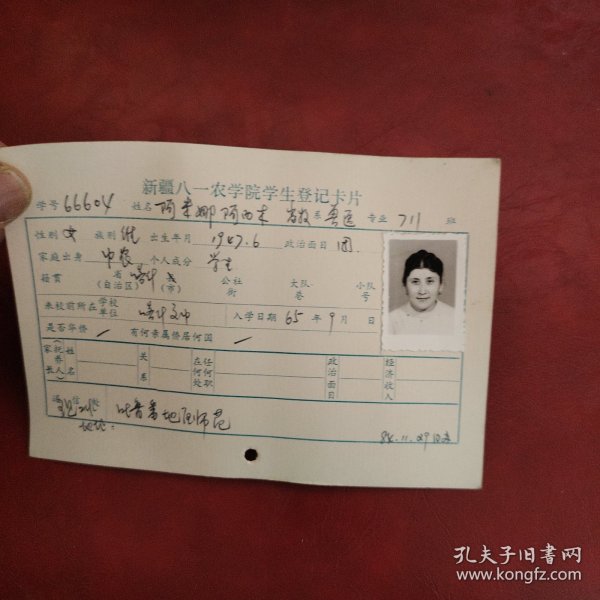 新疆八一农学院学生登记卡片
学号 66604 姓名 阿米娜 阿西木 系 兽医 专业 711 班
性别 女 族别 维 出生年月 1947.6 政治面目 团
家庭出身 中农 个人成分 学生
籍贯 省(自治区) 喀什 县(市) 公社街 大队巷 小队号
来校前所在学校单位 喀什 入学日期 65 年 9 月 日
是否华侨 / 有何亲属侨居何国 /
家长(托养人)姓名 关系 在何处任何职 政治面目 经济收入
通信处
现 地址: 吐鲁番地区师范
84.11.29
孔夫子旧书网
www.kongfz.com